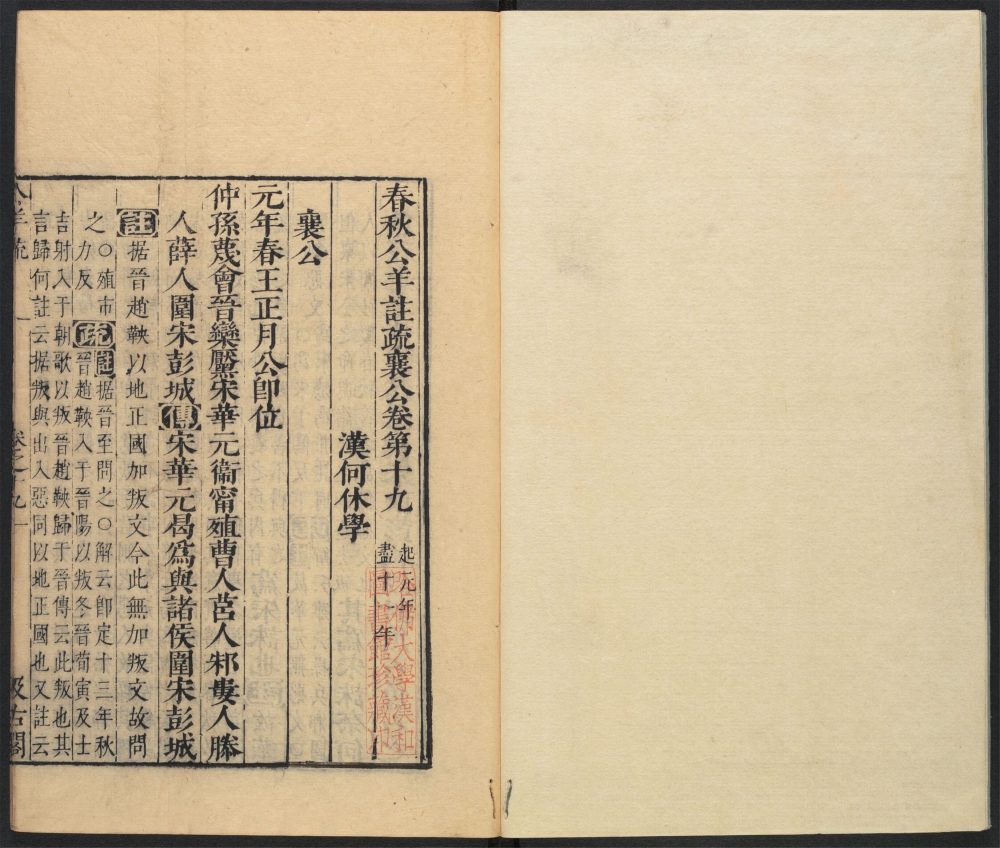 春秋公羊註疏襄公卷第十九
起元年
盡十年
漢何休學
襄公
元年春王正月公卽位
仲孫蔑會晉欒黶宋華元衞甯殖曹人莒人邾婁人滕
人薛人圍宋彭城傳宋華元曷爲與諸侯圍宋彭城
註据晉趙鞅以地正國加叛文今此無加叛文故問
之〇殖市
力反
疏註据晉至問之〇解云卽定十三年秋
晉趙鞅入于晉陽以叛冬晉荀寅及士
吉射入于朝歌以叛晉趙鞅歸于晉傳云此叛也其
言歸何註云据叛與出入惡同以地正國也又註云
公羊疏
卷之十九
一
汲古閣
哈佛大學漢和
圖書館珍藏印